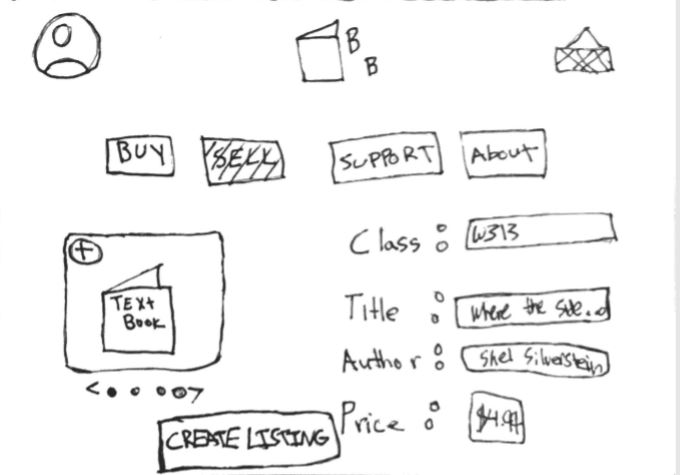 B
B
BUY
SELL
SUPPORT
About
Class : W313
Title : Where the Side...d
Author : Shel Silverstein
Price : $4.99
+
TEXT
BOOK
< >
CREATE LISTING